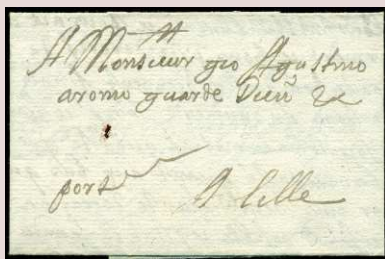 A Monsieur gio Agustino
aromo guarde Dieu &c
port
A Lille